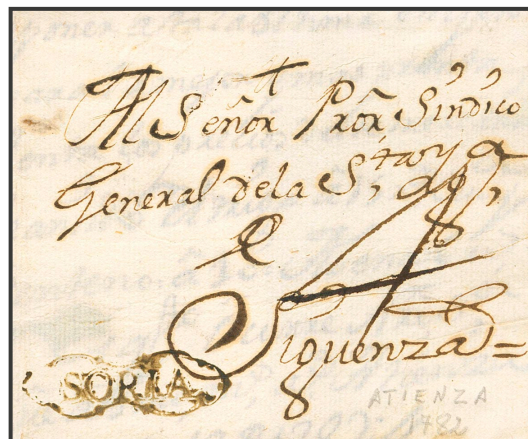 Al Señor Pror Síndico
General de la S,
Siguenza =
SORIA
ATIENZA
1782